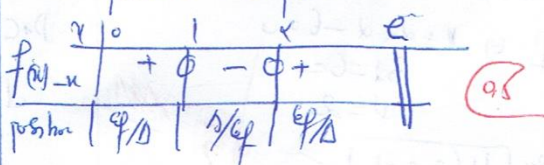 x 0 1 α e
f(x)-x + 0 - 0 +
position Cf/Δ Δ/Cf Cf/Δ
0,5